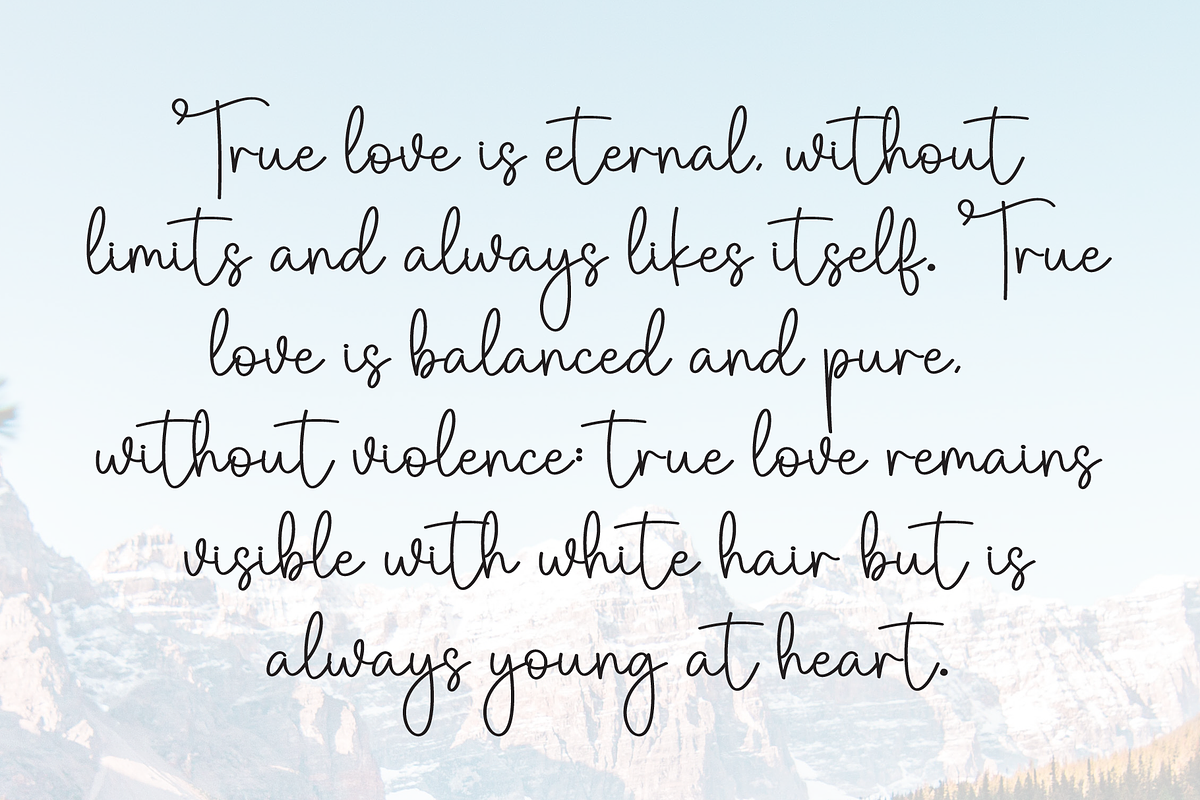 True love is eternal, without
limits and always likes itself. True
love is balanced and pure,
without violence: true love remains
visible with white hair but is
always young at heart.